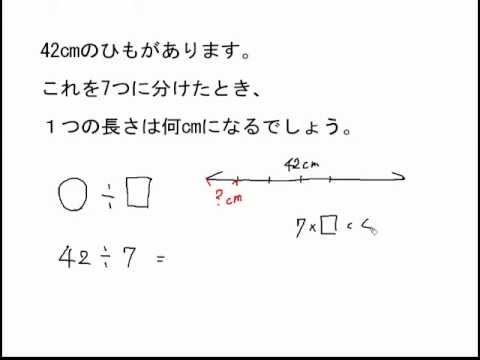 42cmのひもがあります。
これを7つに分けたとき、
１つの長さは何cmになるでしょう。
○÷□
42cm
?cm
7×□=
42÷7=